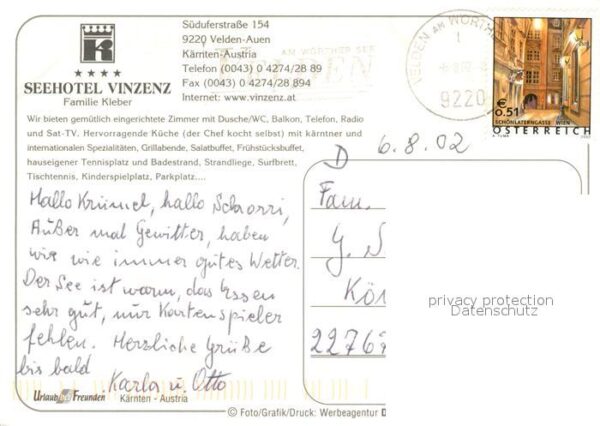 Süduferstraße 154
9220 Velden-Auen
Kärnten-Austria
Telefon (0043) 0 4274/28 89
Fax (0043) 0 4274/28 894
Internet: www.vinzenz.at
SEEHOTEL VINZENZ
Familie Kleber
Wir bieten gemütlich eingerichtete Zimmer mit Dusche/WC, Balkon, Telefon, Radio
und Sat-TV. Hervorragende Küche (der Chef kocht selbst) mit kärntner und
internationalen Spezialitäten, Grillabende, Salatbuffet, Frühstücksbuffet,
hauseigener Tennisplatz und Badestrand, Strandliege, Surfbrett,
Tischtennis, Kinderspielplatz, Parkplatz....
AM WÖRTHER SEE
VELDEN AM WÖRTH
9220
€ 0.51
SCHÖNLATERNGASSE WIEN
ÖSTERREICH
D 6.8.02
Hallo Krümel, hallo Schorri,
Außer mal Gewitter, haben
wir wie immer gutes Wetter.
Der See ist warm, das Essen
sehr gut, nur Kartenspieler
fehlen. Herzliche Grüße
bis bald
Karla u. Otto
Fam.
Köl
2276
privacy protection
Datenschutz
Urlaub bei Freunden
Kärnten - Austria
© Foto/Grafik/Druck: Werbeagentur D